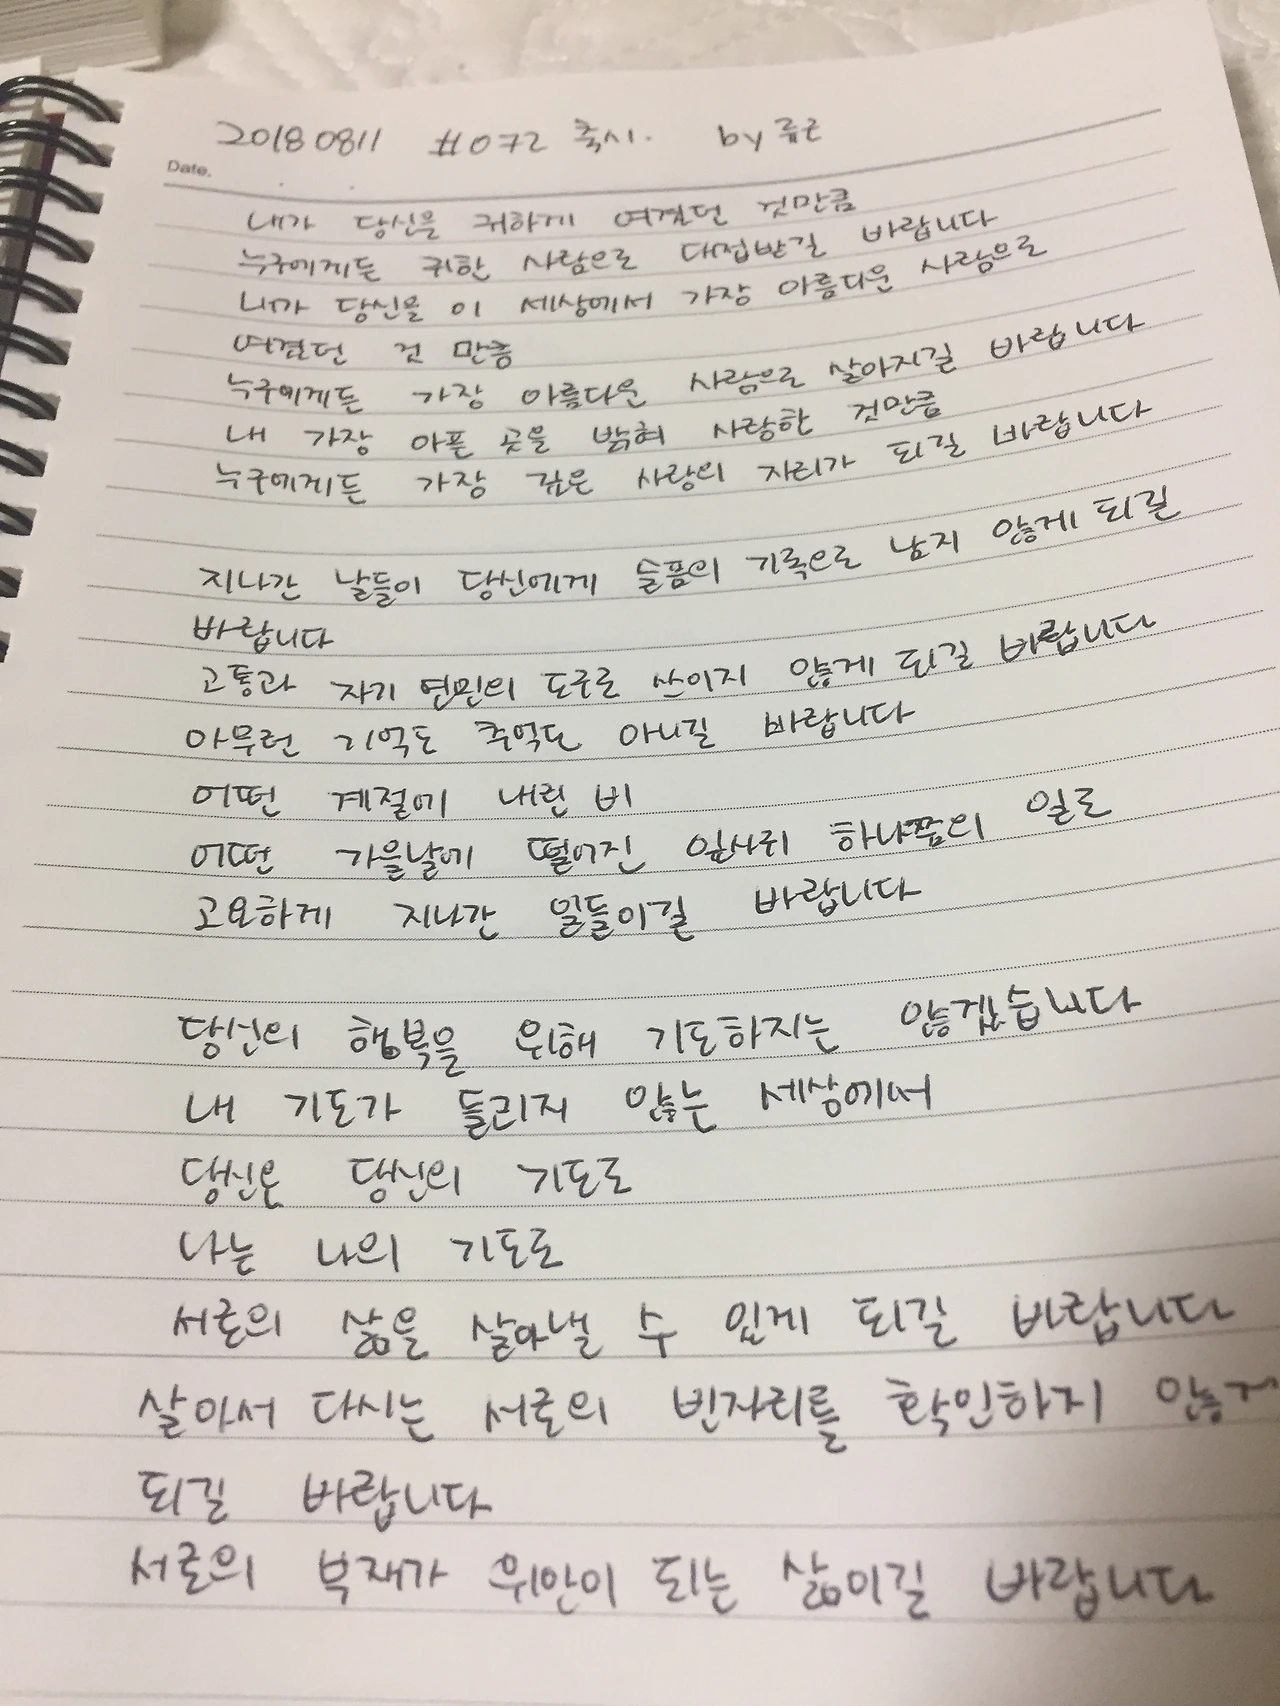 20180811 #072 축시. by 류근
Date.
내가 당신을 귀하게 여겼던 것만큼
누구에게든 귀한 사람으로 대접받길 바랍니다
내가 당신을 이 세상에서 가장 아름다운 사람으로
여겼던 것 만큼
누구에게든 가장 아름다운 사람으로 살아지길 바랍니다
내 가장 아픈 곳을 밝혀 사랑한 것만큼
누구에게든 가장 깊은 사랑의 자리가 되길 바랍니다
지나간 날들이 당신에게 슬픔의 기록으로 남지 않게 되길
바랍니다
고통과 자기 연민의 도구로 쓰이지 않게 되길 바랍니다
아무런 기억도 추억도 아니길 바랍니다
어떤 계절에 내린 비
어떤 가을날에 떨어진 잎사귀 하나쯤의 일로
고요하게 지나간 일들이길 바랍니다
당신의 행복을 위해 기도하지는 않겠습니다
내 기도가 들리지 않는 세상에서
당신은 당신의 기도로
나는 나의 기도로
서로의 삶을 살아낼 수 있게 되길 바랍니다
살아서 다시는 서로의 빈자리를 확인하지 않게
되길 바랍니다
서로의 부재가 위안이 되는 삶이길 바랍니다